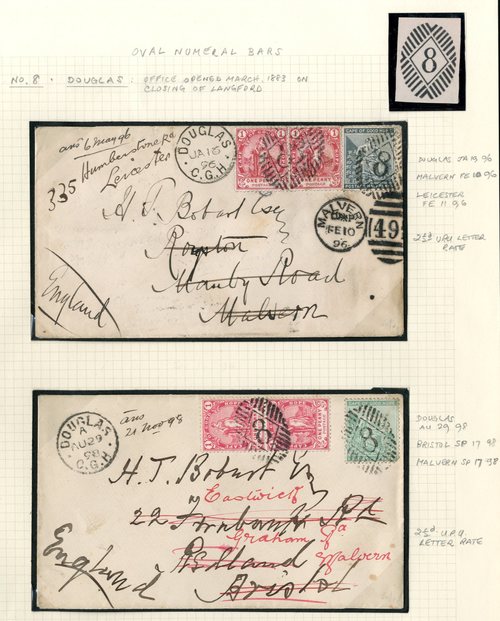 OVAL NUMERAL BARS
8
NO. 8 . DOUGLAS: OFFICE OPENED MARCH, 1883 ON
CLOSING OF LANGFORD
ans 6 may 96
Humberstone Rd
335 Leicester
DOUGLAS
JA 13
96
C.G.H.
8
MALVERN
FE 10
96
49
H. T. Bobart Esq
Royston
Manby Road
Malvern
England
DOUGLAS JA 13 96
MALVERN FE 10 96
LEICESTER
FE 11 96
2½d UPU LETTER
RATE
DOUGLAS
A
AU 29
98
C.G.H
ans
21 Nov 98
8
8
H. T. Bobart Esq
Eastwick
22
Graham Rd
Redland Malvern
Bristol
England
DOUGLAS
AU 29 98
BRISTOL SP 17 98
MALVERN SP 17 98
2½d U.P.U.
LETTER RATE